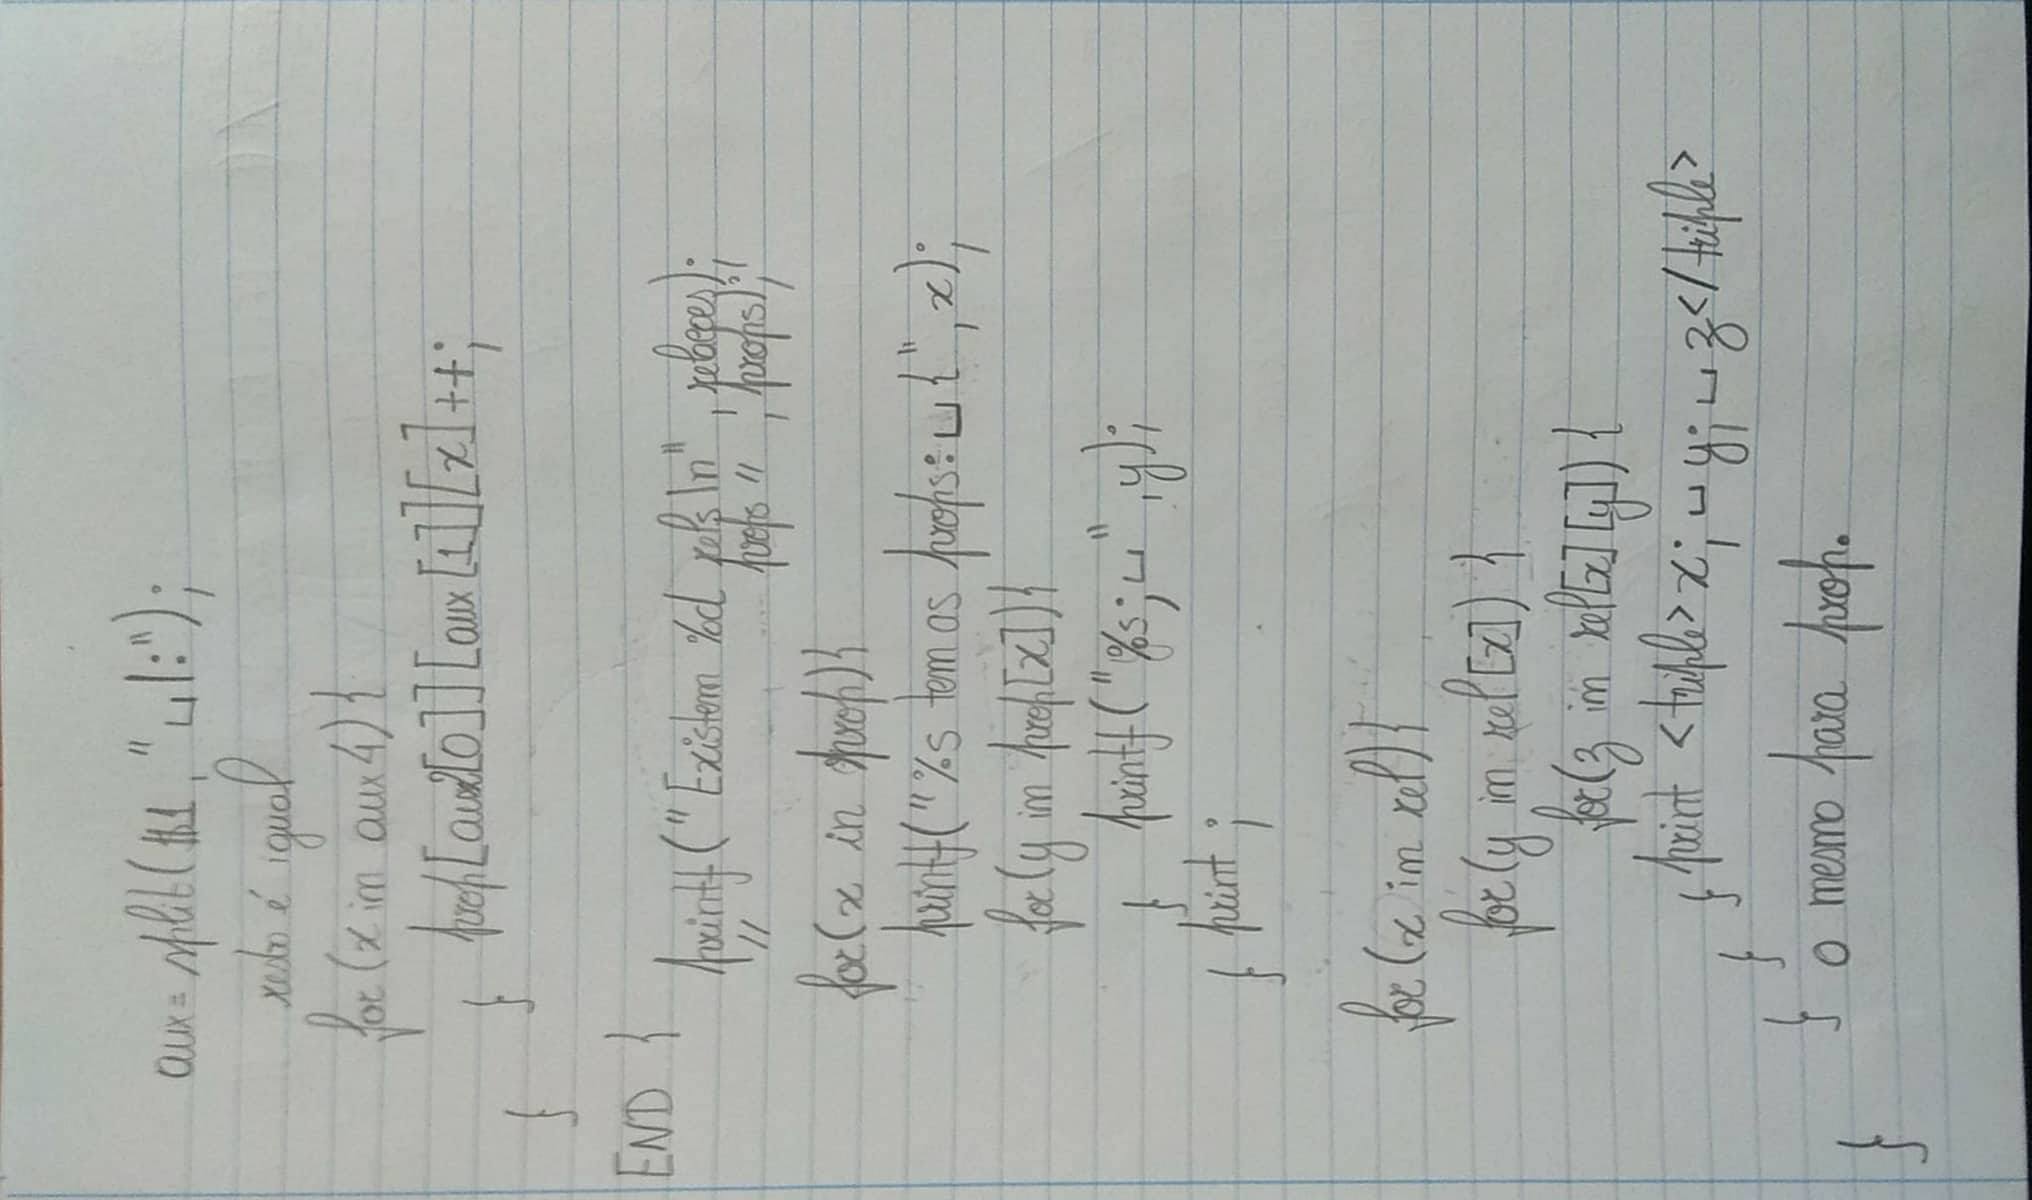 aux = split($1, "␣|:");
resto é igual
for(x in aux4){
prop[aux2[0]][aux[1]][x]++;
}
}
END {
printf("Existem %d rels \n", relacoes);
" props ", props);
for(x in prop){
printf("%s tem as props:␣{", x);
for(y in prop[x]){
printf("%s;␣", y);
}
print;
}
for(x in rel){
for(y in rel[x]) {
for(z in rel[x][y]) {
print <triple>x;␣y;␣z</triple>
}
}
}
o mesmo para prop.
}